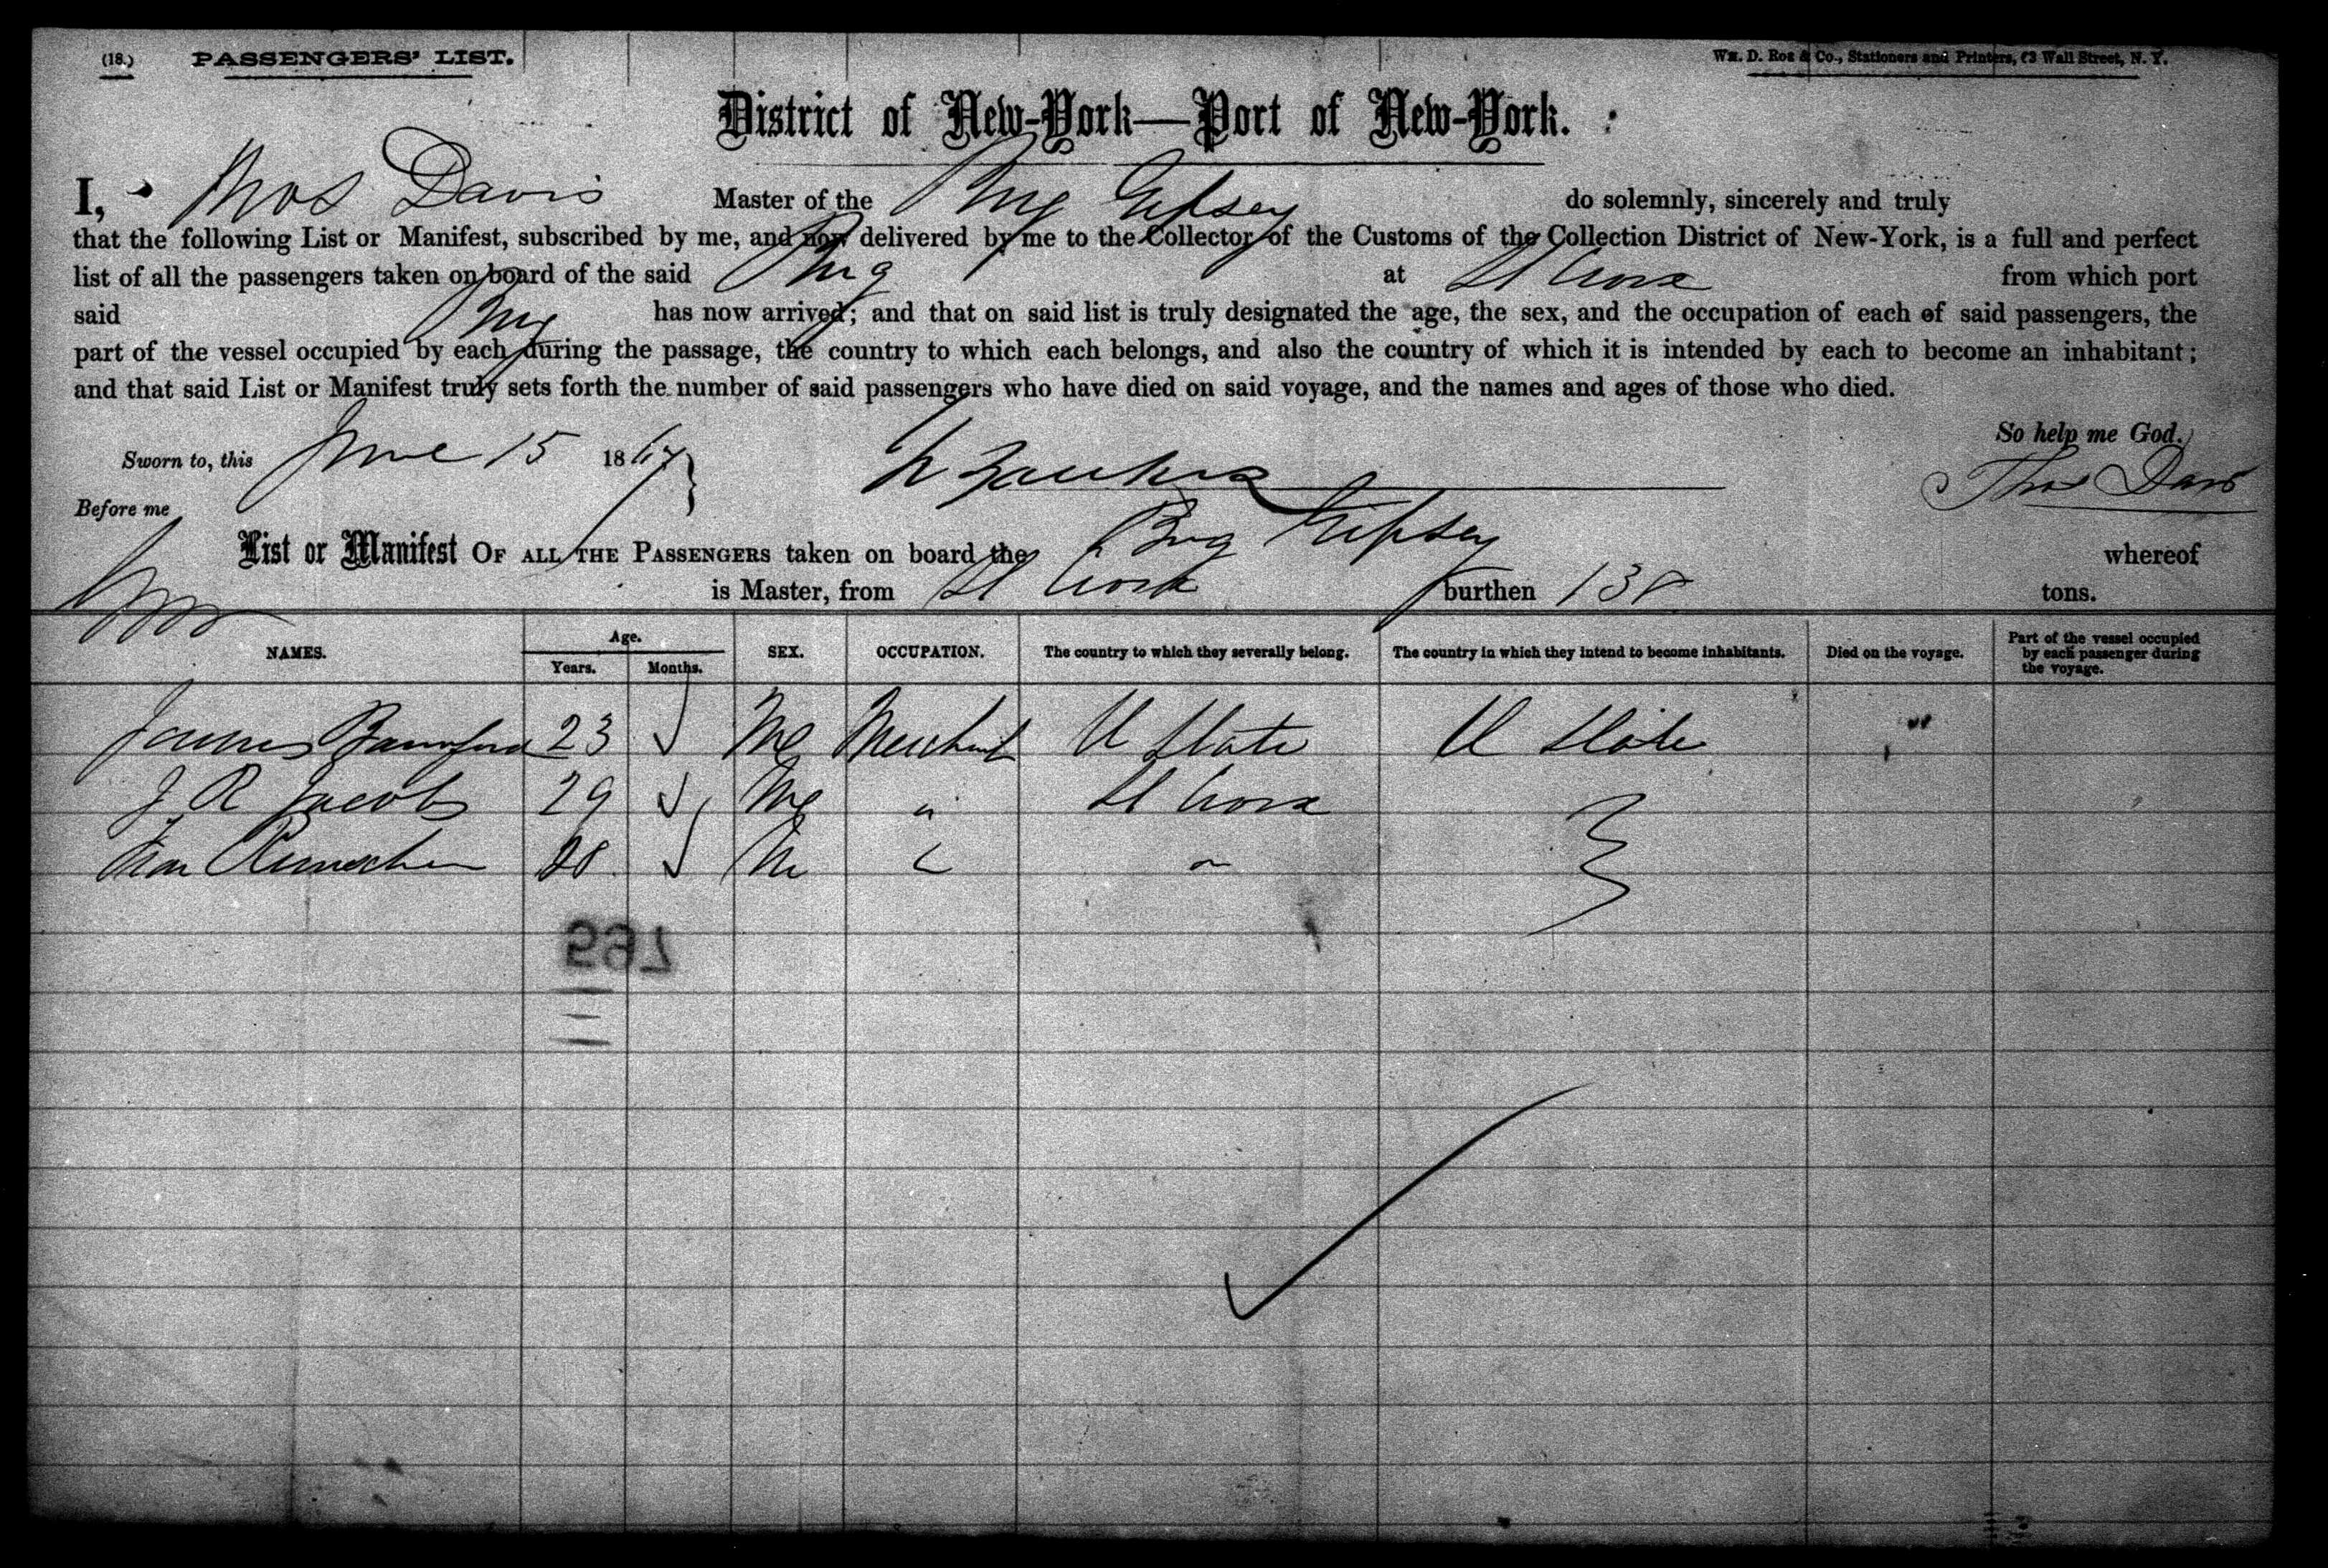 (18.) PASSENGERS' LIST.
Wm. D. Roe & Co., Stationers and Printers, 63 Wall Street, N. Y.
District of New-York—Port of New-York.
I, Thos Davis Master of the Brig Gipsey do solemnly, sincerely and truly
that the following List or Manifest, subscribed by me, and now delivered by me to the Collector of the Customs of the Collection District of New-York, is a full and perfect
list of all the passengers taken on board of the said Brig at St Croix from which port
said Brig has now arrived; and that on said list is truly designated the age, the sex, and the occupation of each of said passengers, the
part of the vessel occupied by each during the passage, the country to which each belongs, and also the country of which it is intended by each to become an inhabitant;
and that said List or Manifest truly sets forth the number of said passengers who have died on said voyage, and the names and ages of those who died.
So help me God.
Sworn to, this June 15 1867
Thos Davis
Before me
List or Manifest OF ALL THE PASSENGERS taken on board the Brig Gipsey whereof
is Master, from St Croix burthen 138 tons.
NAMES. Age. Years. Months. SEX. OCCUPATION. The country to which they severally belong. The country in which they intend to become inhabitants. Died on the voyage. Part of the vessel occupied by each passenger during the voyage.
James 23 Me Merchant U State U State "
J R Jacobs 29 Me " St Croix
28 M "
597